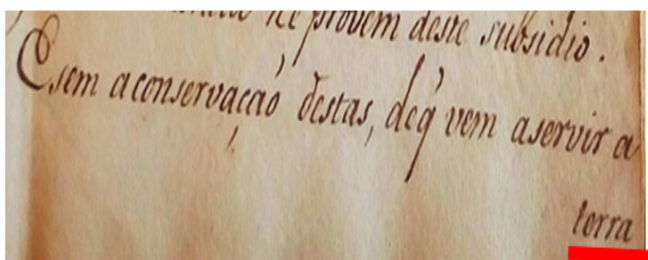 lhe provem deste subsidio.
E sem aconservaçaõ destas, deq̃ vem aservir a
terra